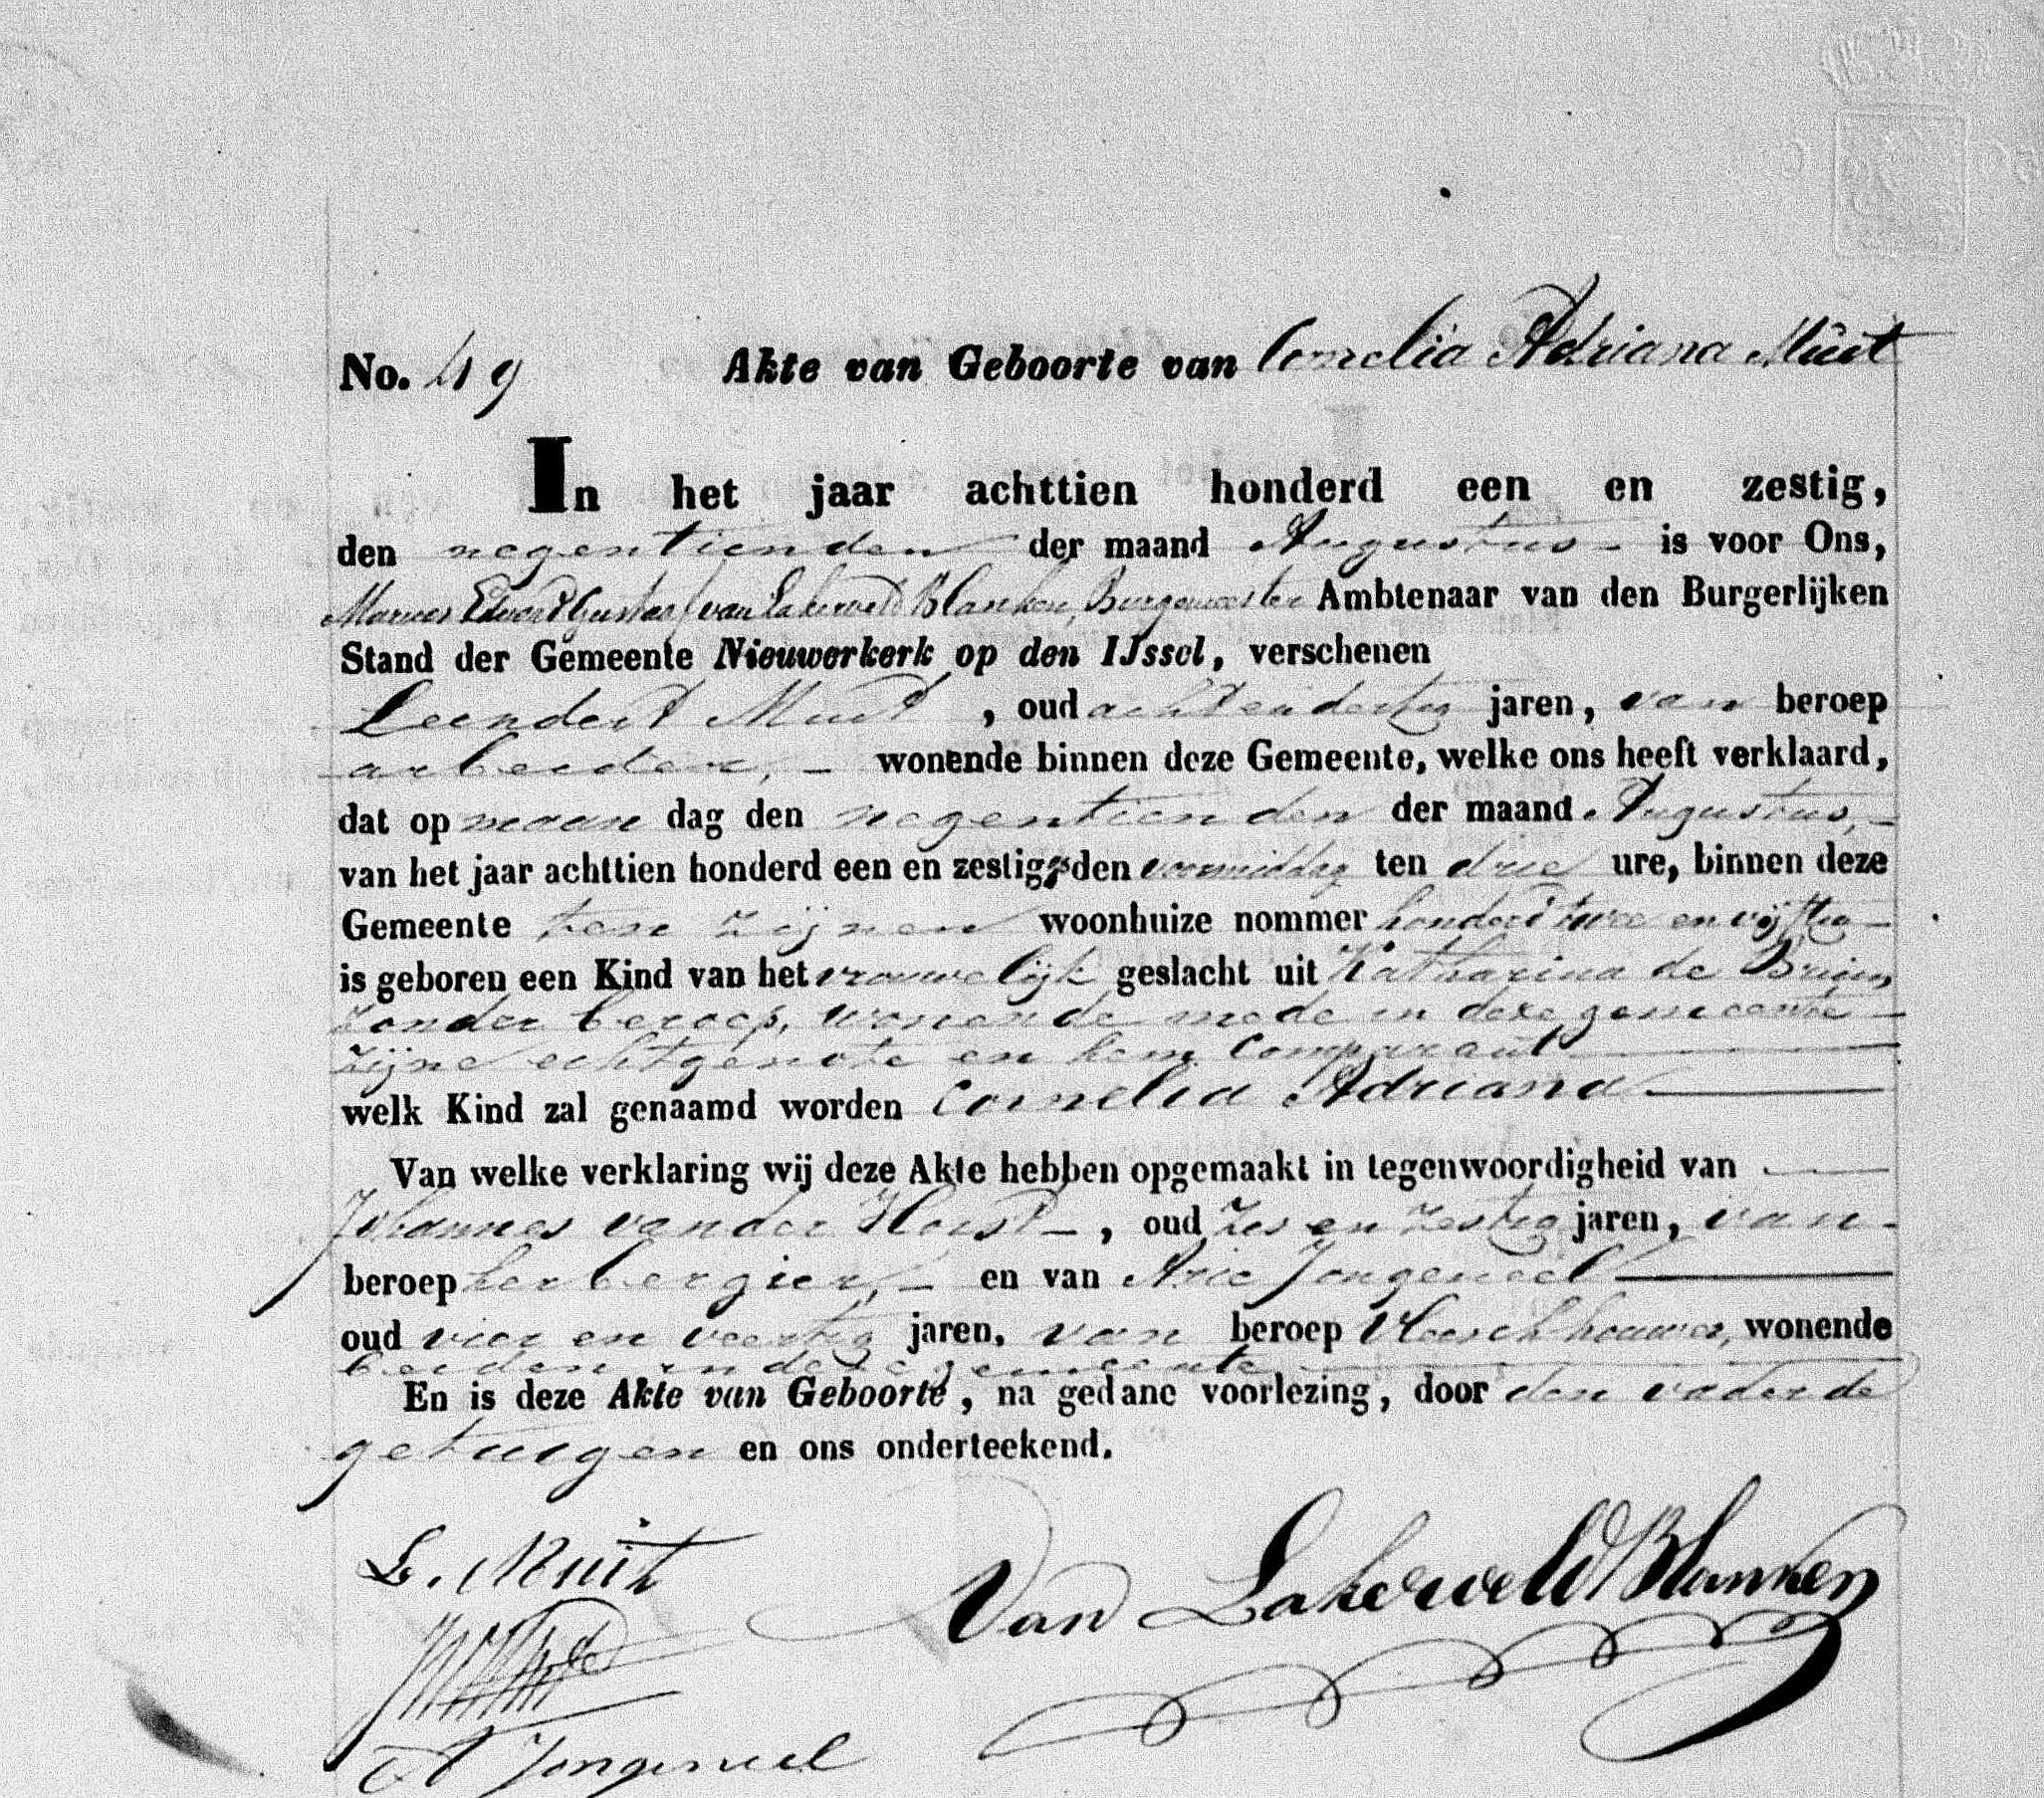 No. 49 Akte van Geboorte van Cornelia Adriana Muit
In het jaar achttien honderd een en zestig,
den negentienden der maand Augustus is voor Ons,
Edward Gustaaf van Lakerveld Blanken, Burgemeester Ambtenaar van den Burgerlijken
Stand der Gemeente Nieuwerkerk op den IJssel, verschenen
Leendert Muit, oud achtendertig jaren, van beroep
arbeider, wonende binnen deze Gemeente, welke ons heeft verklaard,
dat op maan dag den negentienden der maand Augustus,
van het jaar achttien honderd een en zestig, des voormiddag ten drie ure, binnen deze
Gemeente ten zijnen woonhuize nommer honderd twee en vijftig
is geboren een Kind van het vrouwelijk geslacht uit Katharina de Bruin,
zonder beroep, wonende mede in deze gemeente
zijne echtgenote en hem Comparant
welk Kind zal genaamd worden Cornelia Adriana
Van welke verklaring wij deze Akte hebben opgemaakt in tegenwoordigheid van
Johannes van der Horst, oud zes en zestig jaren, van
beroep herbergier, en van Arie Jongeneel
oud vier en veertig jaren, van beroep Vleeschhouwer, wonende
beiden in deze gemeente
En is deze Akte van Geboorte, na gedane voorlezing, door den vader de
getuigen en ons onderteekend.
L. Muit
Van Lakerveld Blanken
A Jongeneel